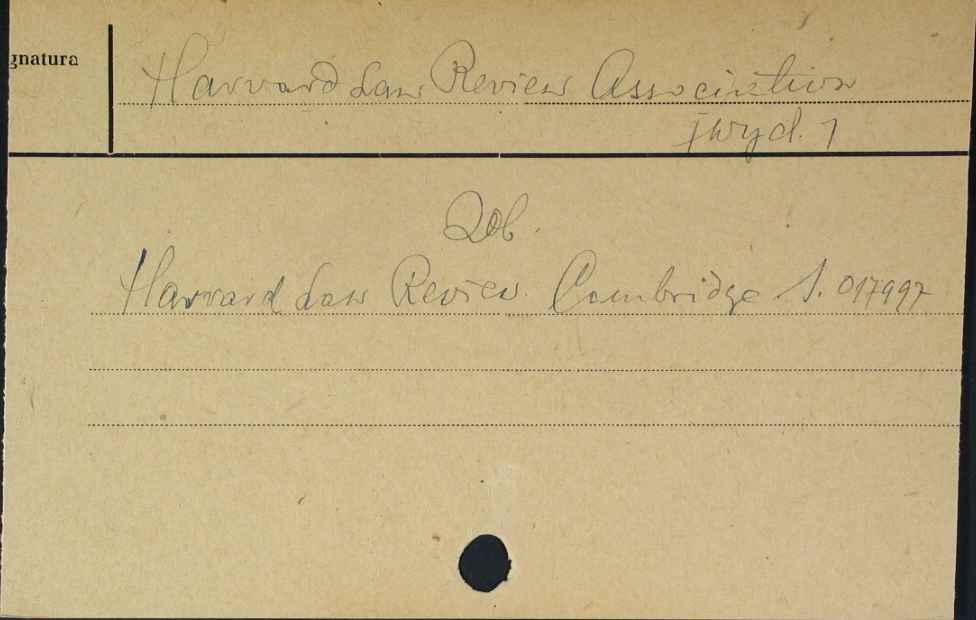 gnatura
Harvard Law Review Association
[wyd.]
Zob.
Harvard Law Review. Cambridge S. 017997